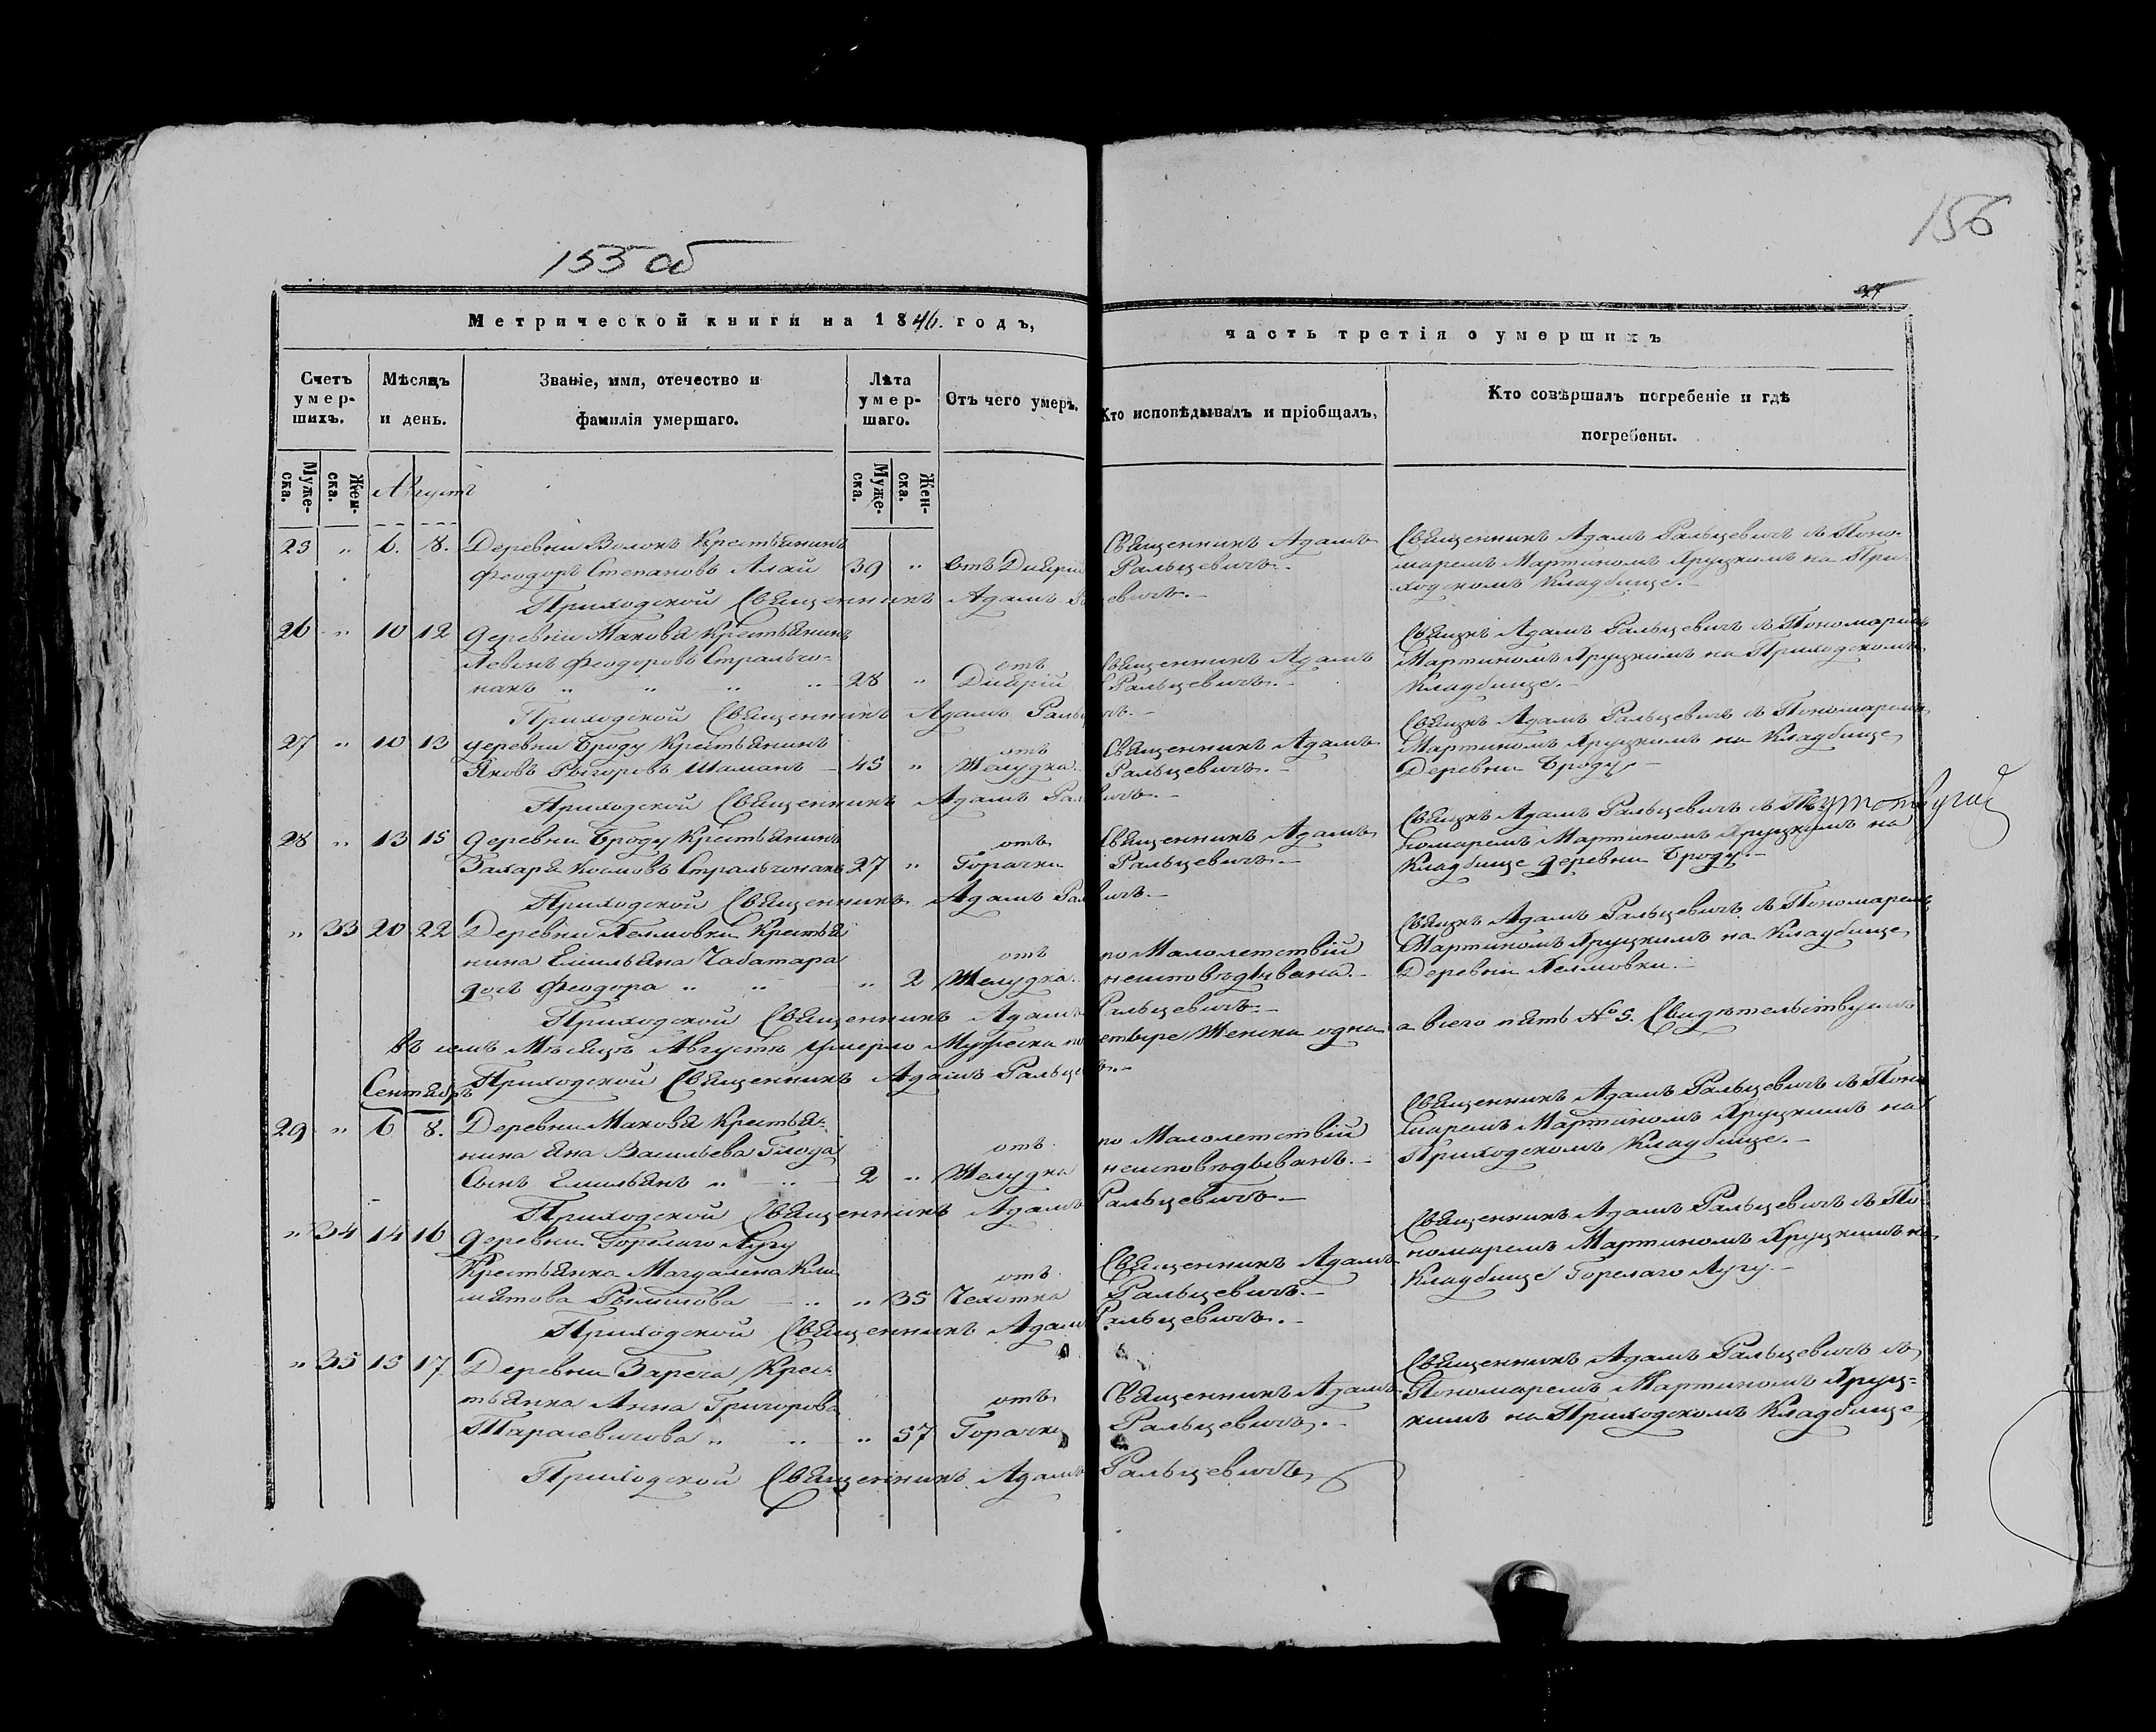 155 об
156
37
Метрической книги на 1846. годъ,
часть третія о умершихъ
Счетъ умер-шихъ.
Мѣсяцъ и день.
Званіе, имя, отечество и фамилія умершаго.
Лѣта умер-шаго.
Отъ чего умеръ.
Кто исповѣдывалъ и пріобщалъ,
Кто совѣршалъ погребеніе и гдѣ погребены.
Муже-ска.
Жен-ска.
Августъ
Муже-ска.
Жен-ска.
25 „ 6. 8. Деревни Волокъ Крестьянинъ
Феодоръ Степановъ Алай 39 „ отъ Диѣріи
Священникъ Адамъ
Ральцевичъ.-
Священникъ Адамъ Ральцевичъ съ Поно-
маремъ Мартиномъ Хруцкимъ на При-
ходскомъ Кладбище.-
Приходской Священникъ Адамъ Ральцевичъ.-
26 „ 10 12 деревни Махова Крестьянинъ
Левонъ Феодоровъ Стральчо-
накъ „ „ „ „ 28 „ отъ Диѣрій
Священникъ Адамъ
Ральцевичъ.-
Свящкъ Адамъ Ральцевичъ съ Пономаремъ
Мартиномъ Хруцкимъ на Приходскомъ
Кладбище.-
Приходской Священникъ Адамъ Ральцевичъ.-
27 „ 10 13 деревни Броду Крестьянинъ
Яковъ Рыгоровъ Шаманъ - 45 „ отъ Желудка.
Священникъ Адамъ
Ральцевичъ.-
Свящкъ Адамъ Ральцевичъ съ Пономаремъ
Мартиномъ Хруцкимъ на Кладбище
Деревни Броду.-
Приходской Священникъ Адамъ Ральцевичъ.-
28 „ 13 15 деревни Броду Крестьянинъ
Захаръ Космовъ Стральчонакъ 27 „ отъ Горачки
Священникъ Адамъ
Ральцевичъ.-
Свящкъ Адамъ Ральцевичъ съ По-
номаремъ Мартиномъ Хруцкимъ на
Кладбище деревни Броду.-
Приходской Священникъ Адамъ Ральцевичъ.-
„ 33 20 22 Деревни Хелмовки Крестья
нина Емильяна Чабатара
дочь Феодора „ „ „ 2 отъ Желудка.
по Малолетствій
неисповѣдывана.-
Свящкъ Адамъ Ральцевичъ съ Пономаремъ
Мартиномъ Хруцкимъ на Кладбище
Деревни Хелмовки.-
Приходской Священникъ Адамъ Ральцевичъ.-
Въ семъ Мѣсяцѣ Августѣ умерло Мужеска четыре Женска одна а всего пять № 5. Свидѣтельствуемъ
Приходской Священникъ Адамъ Ральцевичъ.-
Сентябрь
29 „ 6 8. Деревни Махова Крестья-
нина Яна Васильева Глода
Сынъ Емильянъ „ „ 2 „ отъ Желудка
по Малолетствій
неисповѣдыванъ.-
Священникъ Адамъ Ральцевичъ съ Поно
маремъ Мартиномъ Хруцкимъ на
Приходскомъ Кладбище.-
Приходской Священникъ Адамъ Ральцевичъ.-
„ 34 14 16 деревни Горелаго Лугу
Крестьянка Магдалена Кли
матова Рымшова „ „ 35 отъ Чехотка
Священникъ Адамъ
Ральцевичъ.-
Священникъ Адамъ Ральцевичъ съ По-
номаремъ Мартиномъ Хруцкимъ на
Кладбище Горелаго Лугу.-
Приходской Священникъ Адамъ Ральцевичъ.-
„ 35 15 17 Деревни Заречя Крес-
тьянка Анна Григорова
Тарасевичова „ „ „ 57 отъ Горачки
Священникъ Адамъ
Ральцевичъ.-
Священникъ Адамъ Ральцевичъ съ
Пономаремъ Мартиномъ Хруц-
кимъ на Приходскомъ Кладбище
Приходской Священникъ Адамъ Ральцевичъ